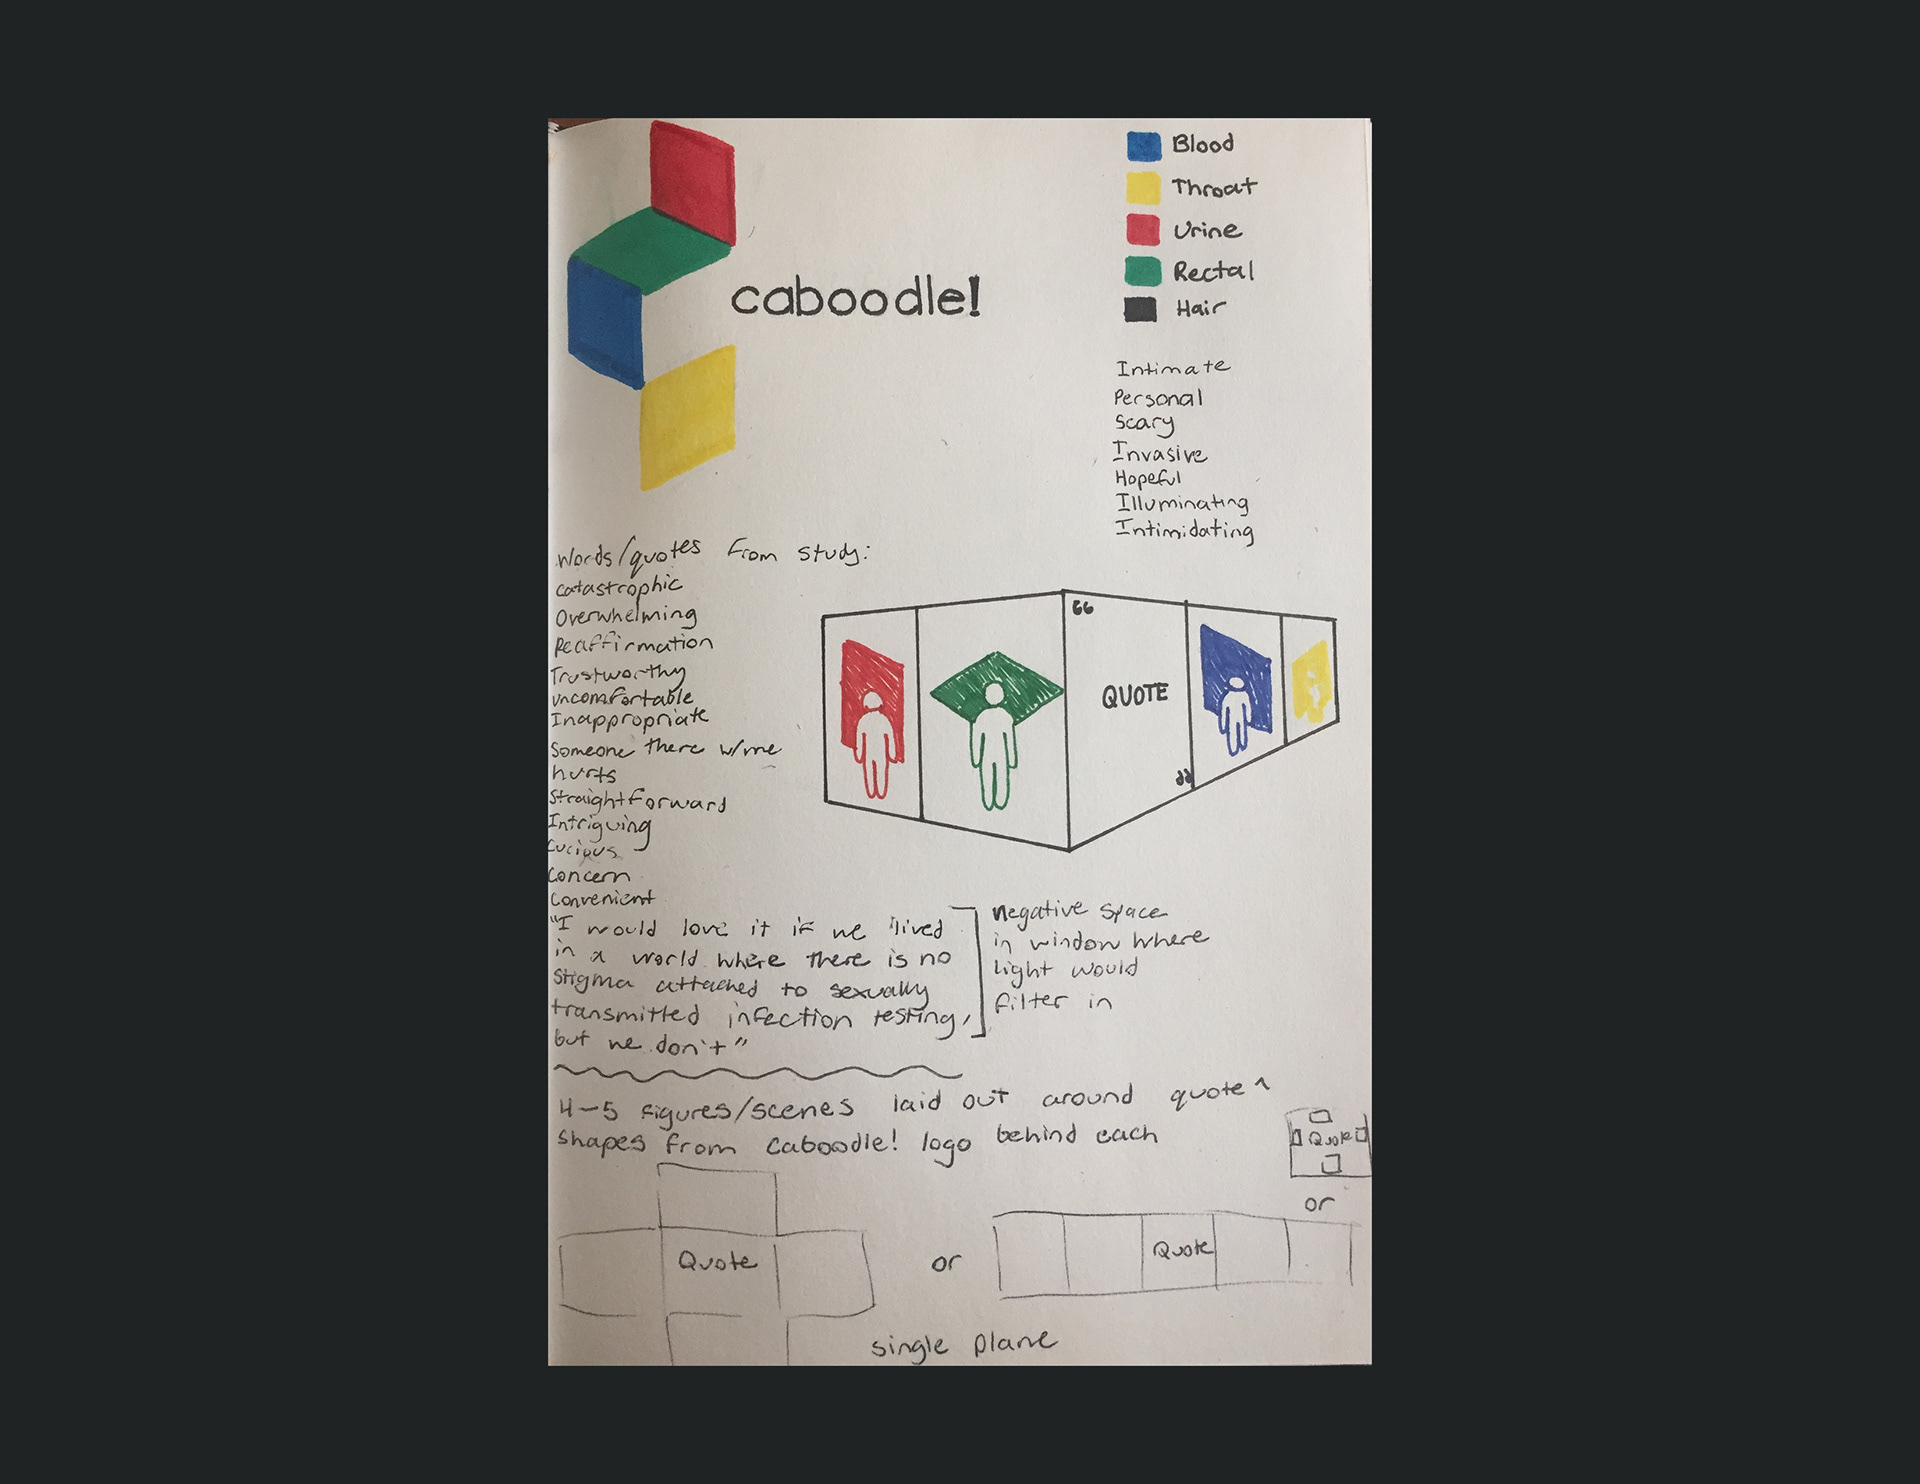 caboodle!
Blood
Throat
Urine
Rectal
Hair
Intimate
Personal
Scary
Invasive
Hopeful
Illuminating
Intimidating
Words/quotes from study:
catastrophic
Overwhelming
Reaffirmation
Trustworthy
uncomfortable
Inappropriate
Someone there w/me
hurts
Straightforward
Intriguing
Curious
Concern
Convenient
"I would love it if we lived
in a world where there is no
stigma attached to sexually
transmitted infection testing,
but we don't"
negative space
in window where
light would
filter in
“
QUOTE
”
4-5 figures/scenes laid out around quote ^
shapes from caboodle! logo behind each
Quote
or
Quote
or
Quote
single plane